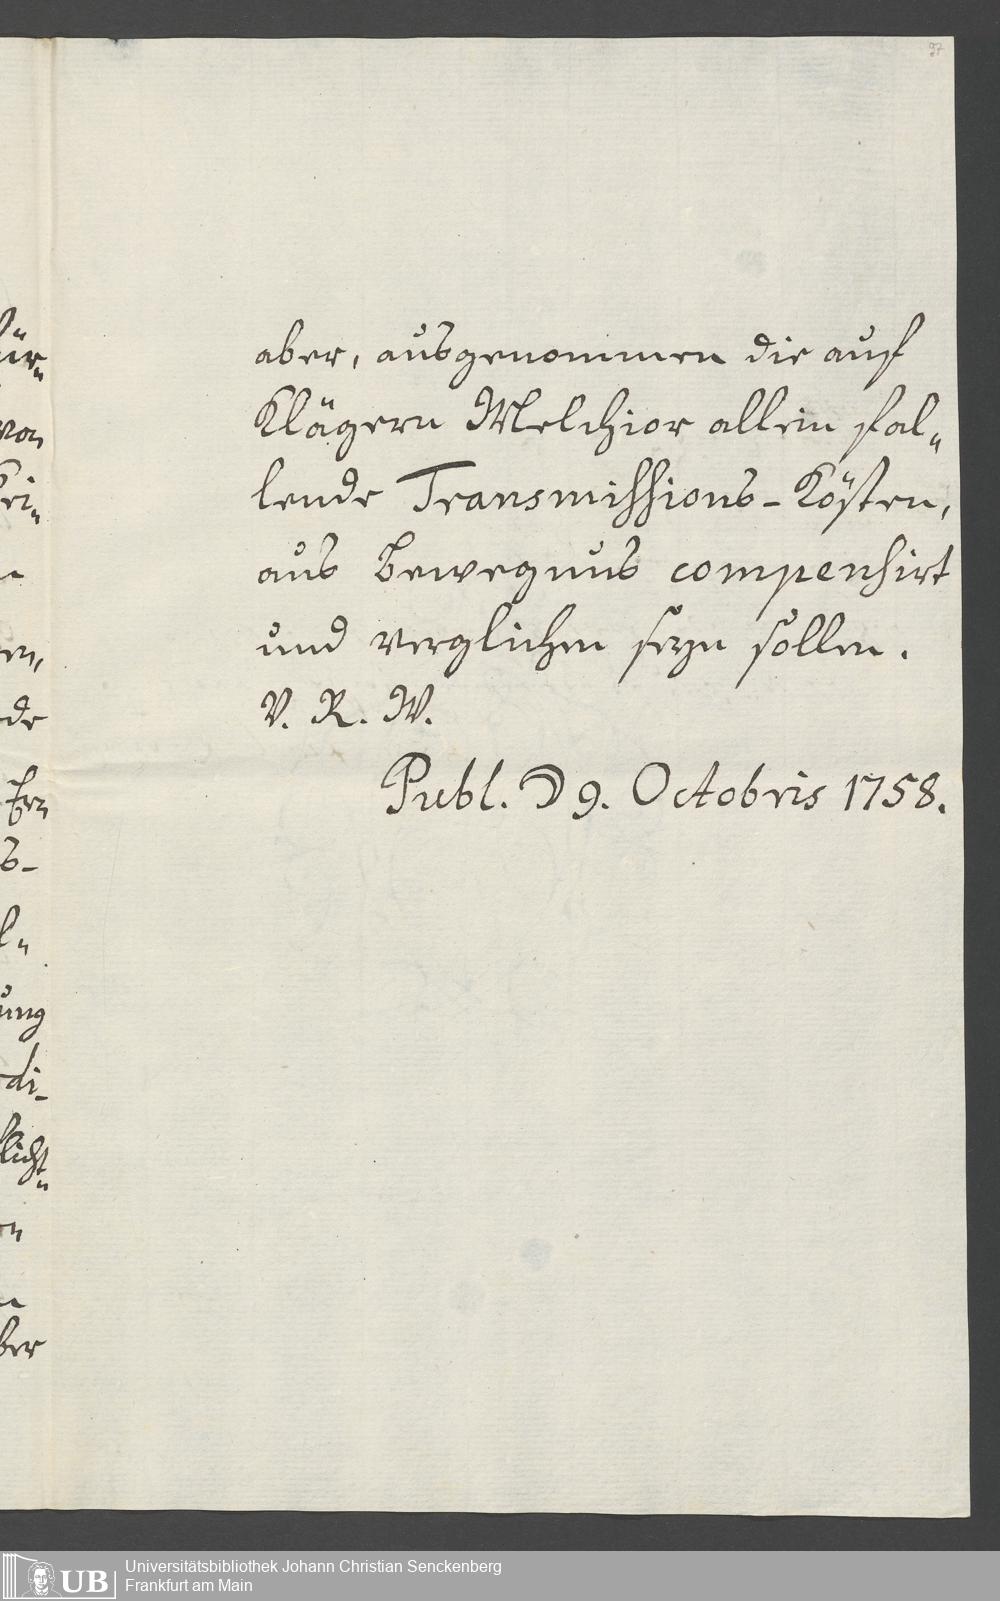 97
aber, ausgenommen die auf
Klägern Melchior allein fal„
lende Transmissions-Kösten,
aus Bewegnus compensirt
und verglichen seyn sollen.
V. R. W.
Publ. D 9. Octobris 1758.
ür„
von
en,
de
s-
l„
ung
di-
licht„
ber
UB
Universitätsbibliothek Johann Christian Senckenberg
Frankfurt am Main